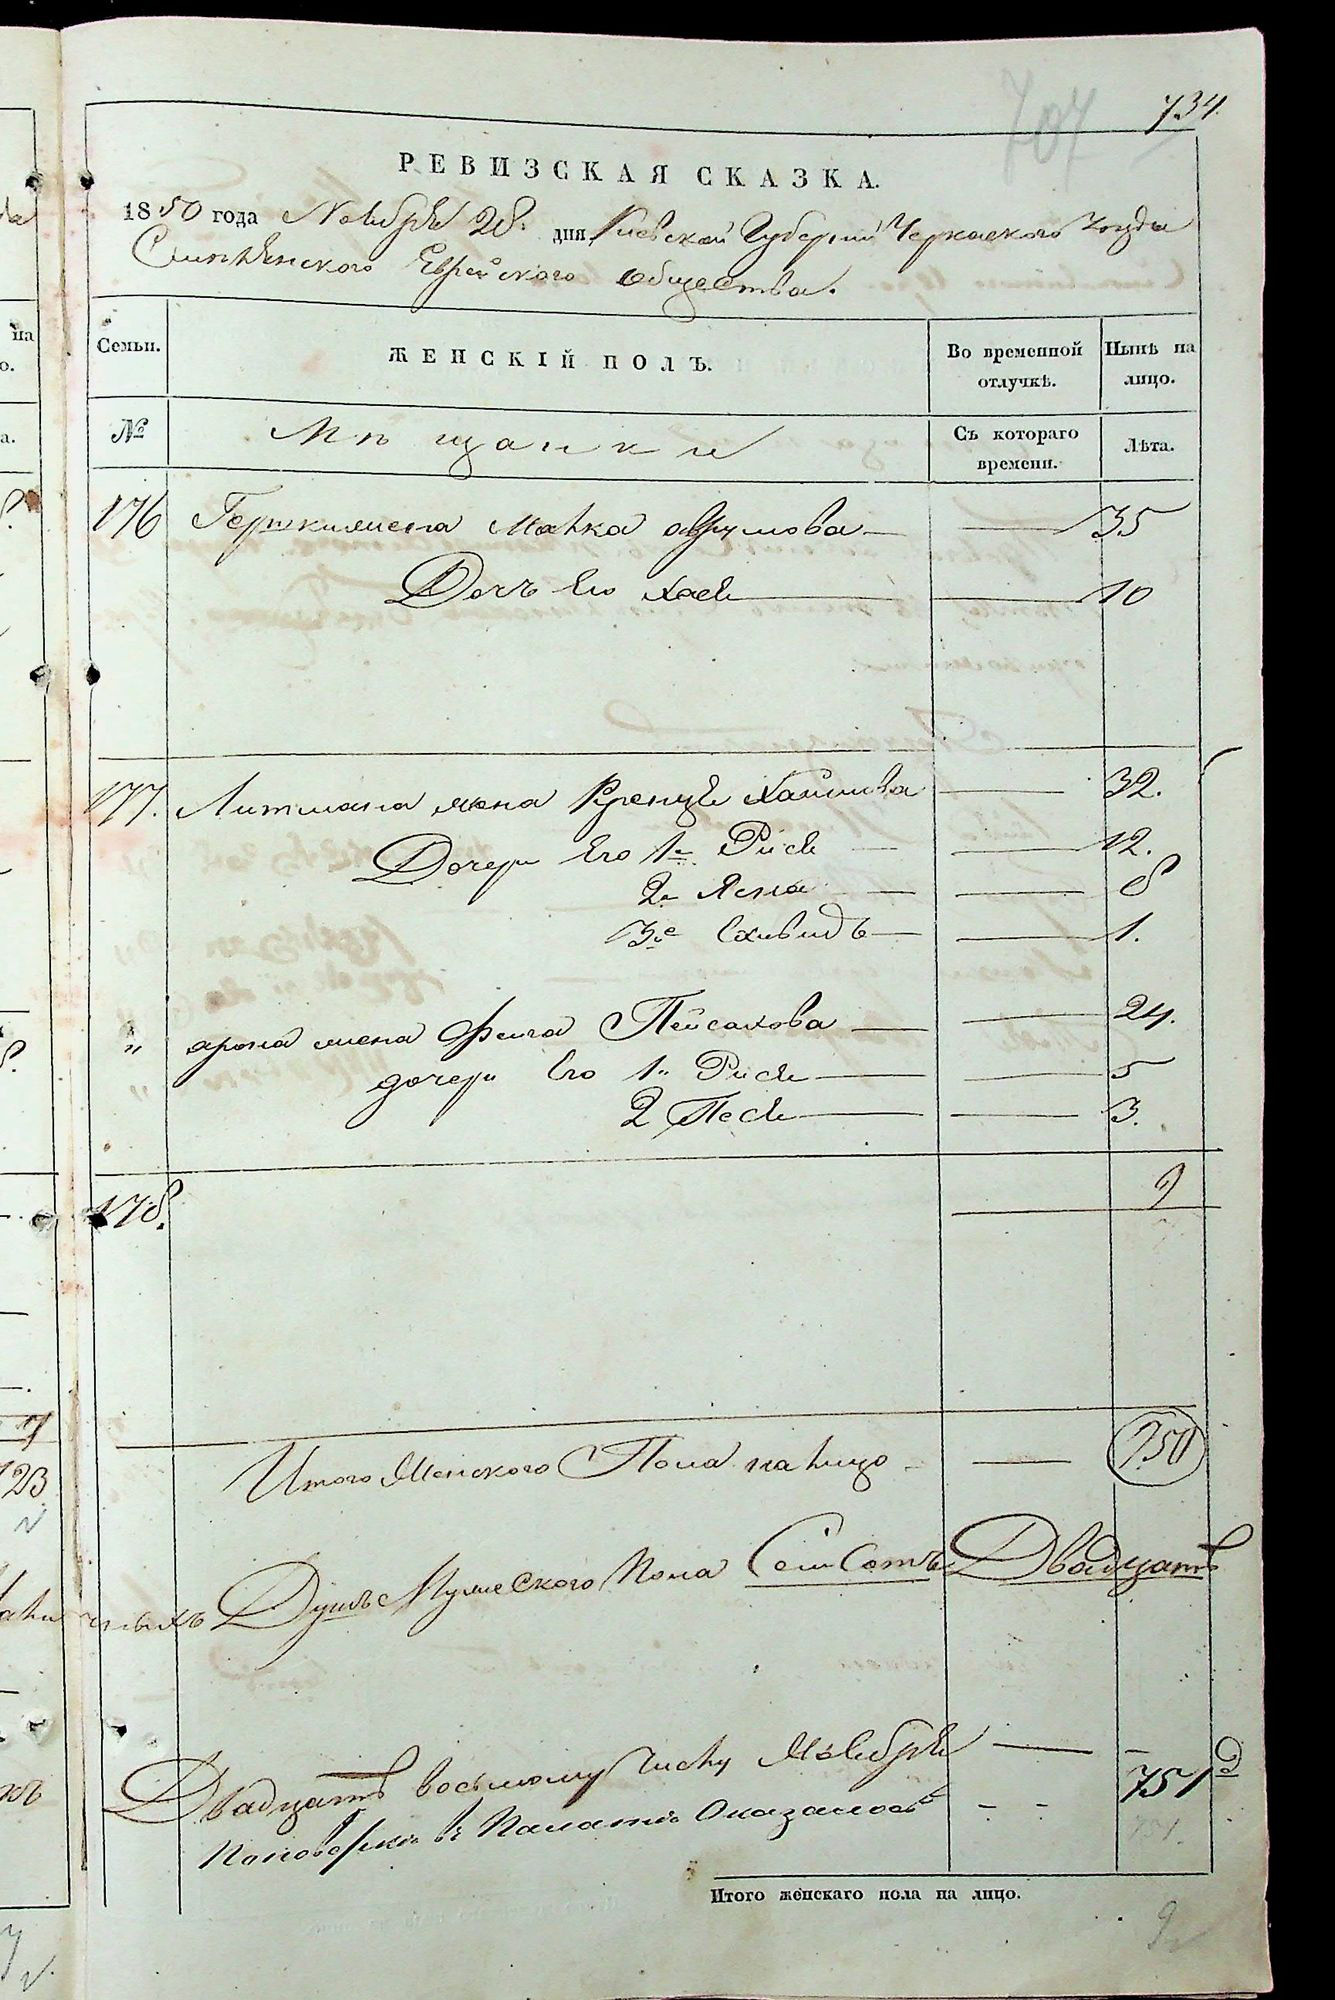 707
734.
РЕВИЗСКАЯ СКАЗКА.
1850 года Ноября 28. дня Киевской Губернии Черкаского уезда
Смилянского Еврейского общества.
Семьи. ЖЕНСКІЙ ПОЛЪ. Во временной отлучкѣ. Нынѣ на лицо.
№ Мѣщанки Съ котораго времени. Лѣта.
176 Гершки жена Малка аврумова 35
Дочь Его Хася 10
177. Литмана жена Кренця Хаимова 32.
Дочери Его 1я Рися 12.
2я Ясна 8
3я 1.
" арона жена Фейга Пейсахова 24.
дочери Его 1я Рися 5
2 Песя 3.
178. 9
Итого Женского Пола на лицо 750
Душъ Мужеского Пола Семь Сотъ Двадцать
Двадцать восьмому числу Ноября
По поверки в Палати Оказалось 751
751.
Итого женскаго пола на лицо.
9